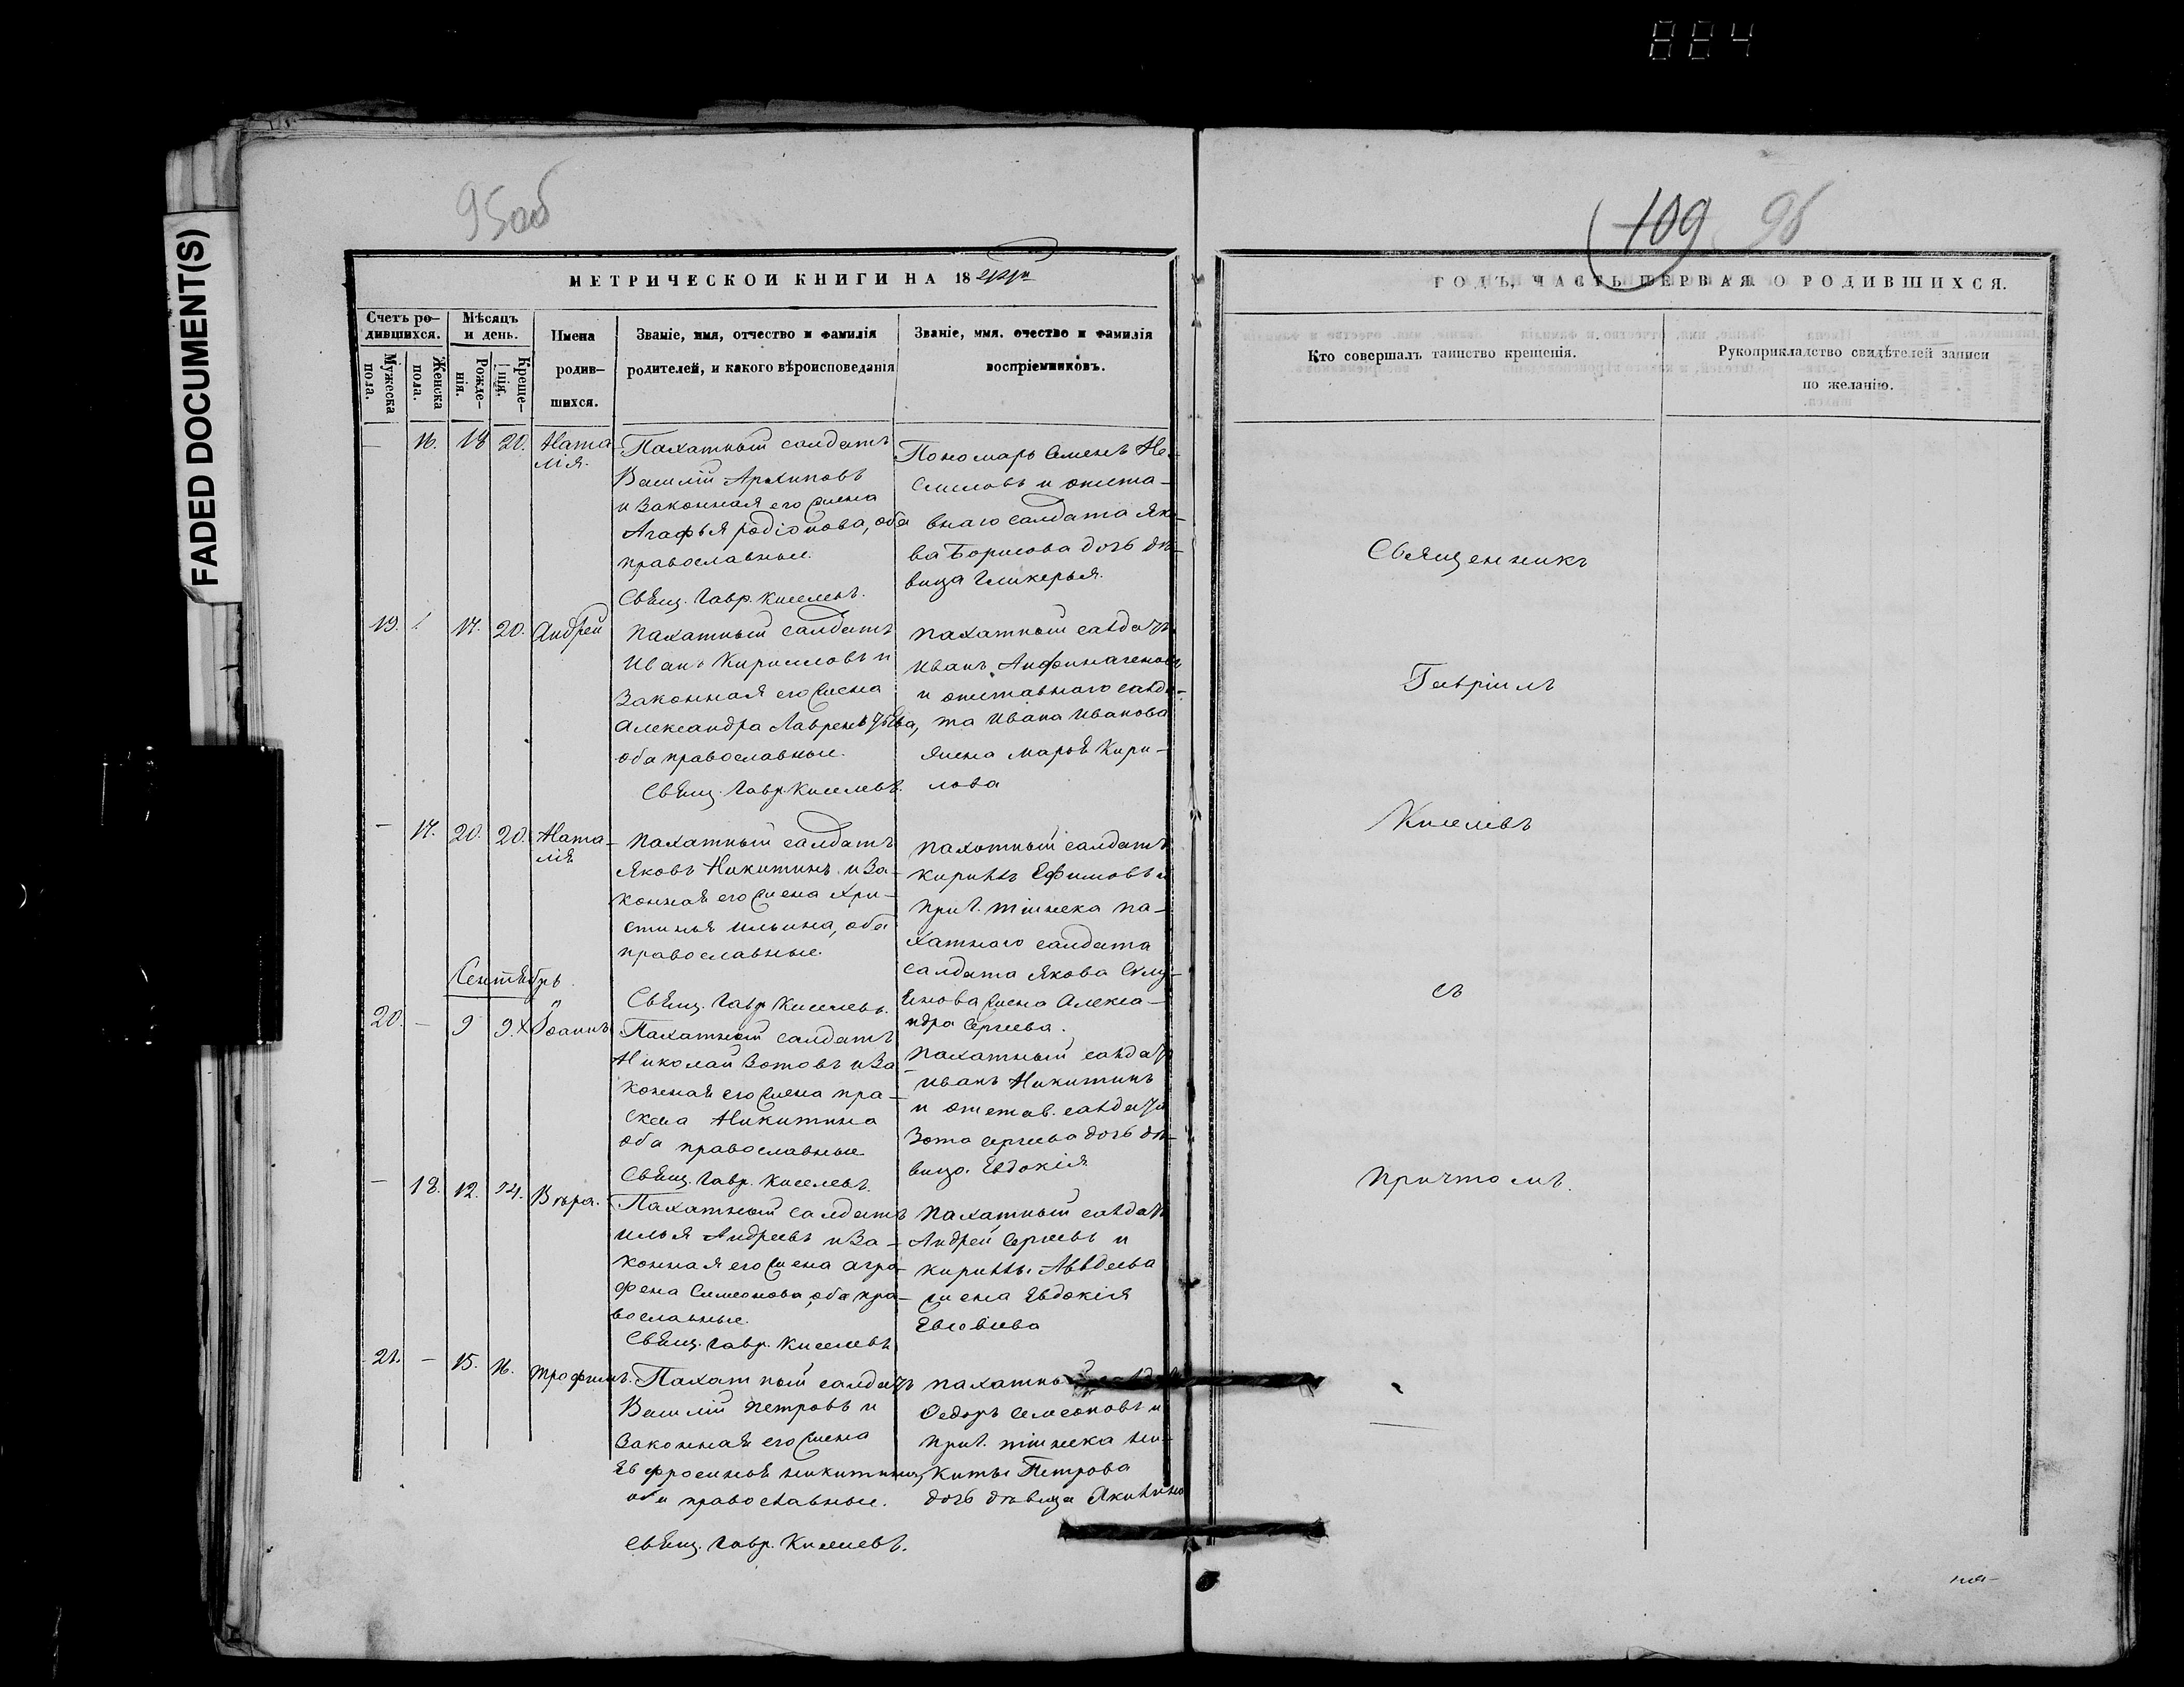 884
FADED DOCUMENT(S)
95об
109 96
МЕТРИЧЕСКОЙ КНИГИ НА 18
ГОДЪ, ЧАСТЬ ПЕРВАЯ О РОДИВШИХСЯ.
Счетъ ро-
дившихся.
Мужеска
пола.
Женска
пола.
Мѣсяцъ
и день.
Рожде-
нія.
Креще-
нія.
Имена
родив-
шихся.
Званіе, имя, отчество и фамилія
родителей, и какого вѣроисповеданія
Званіе, имя. очество и фамилія
воспріемниковъ.
Кто совершалъ таинство крещенія.
Рукоприкладство свидѣтелей записи
по желанію.
— 16. 18 20. Ната-
лія.
Пахатный салдатъ
Василій Архиповъ
и Законная его жена
Агафья родіонова, оба
православные.
Свящ. Гавр. Киселевъ.
Пономарь Семенъ
и отста-
внаго салдата Яко-
ва Борисова дочь дѣ-
вица Гликерья.
19. 17. 20. Андрей
пахатный салдатъ
Иванъ Кириловъ и
Законная его жена
Александра Лаврентьева,
оба православные.
Свящ. Гавр. Киселевъ.
пахатный салдатъ
иванъ
и отставнаго салда-
та Ивана Иванова
жена Марья Кири-
лова
— 17. 20. 20. Ната-
лія
пахатный салдатъ
Яковъ Никитинъ и За-
конная его жена Хри-
стинья Ильина, оба
православные.
Свящ. Гавр. Киселевъ.
пахотный салдатъ
кирилъ Ефимовъ и
па-
хатнаго салдата
салдата Якова
жена Алекса-
ндра Сергеева.
Сентябрь
20. — 9 9. Іоаннъ
Пахатный салдатъ
Николай Зотовъ и За
конная его жена пра-
скева Никитина
оба православные
Свящ. Гавр. Киселевъ.
пахатный салдатъ
иванъ Никитинъ
и отстав. салдата
Зота Сергеева дочь дѣ-
вица Евдокія
— 18. 12. 14. Вѣра.
Пахатный салдатъ
илья Андреевъ и За-
конная его жена агра-
фена Симеонова, оба пра-
вославные.
Свящ. Гавр. Киселевъ
пахатный салдатъ
Андрей Сергеевъ и
кирилы Авдеева
жена Евдокія
21. — 15. 16. трофимъ.
Пахатный салдатъ
Василій петровъ и
Законная его жена
Евфросинья никитина,
оба православные.
Свящ. Гавр. Киселевъ.
пахатный
Федоръ Семеоновъ и
ни-
киты Петрова
дочь дѣвица Акилина
Священникъ
Гавріилъ
Киселевъ
съ
причтомъ.